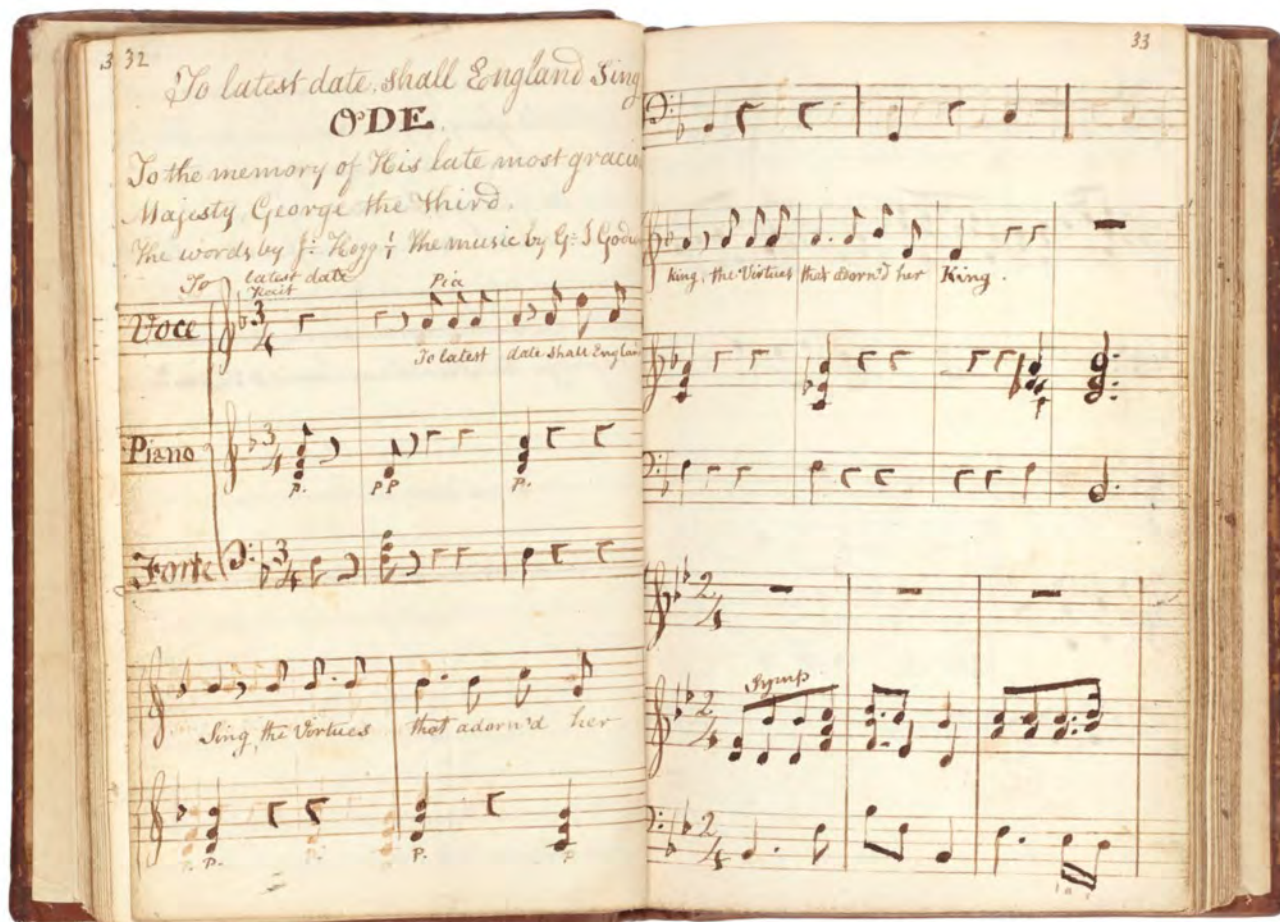 32
To latest date, shall England Sing
ODE.
To the memory of His late most graciou
Majesty George the third.
The words by J: Hogg: the music by G: S Godw
To latest date
Pia
Voce
3
4
To latest date shall Englan
Piano
3
4
P. PP P.
Forte
3
4
Sing, the Virtues that adorn'd her
P. P. P. P
33
King, the Virtues that adorn'd her King.
P
2
4
Symp
2
4
2
4